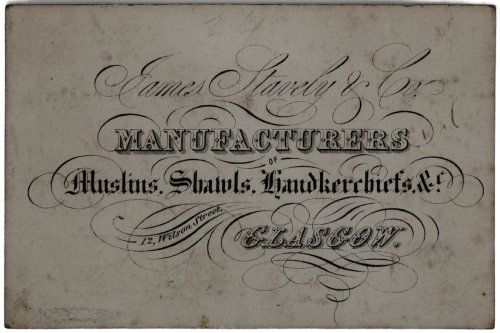 James Stavely & Co
MANUFACTURERS
OF
Muslins, Shawls, Handkerchiefs, &c.
12, Wilson Street,
GLASGOW.